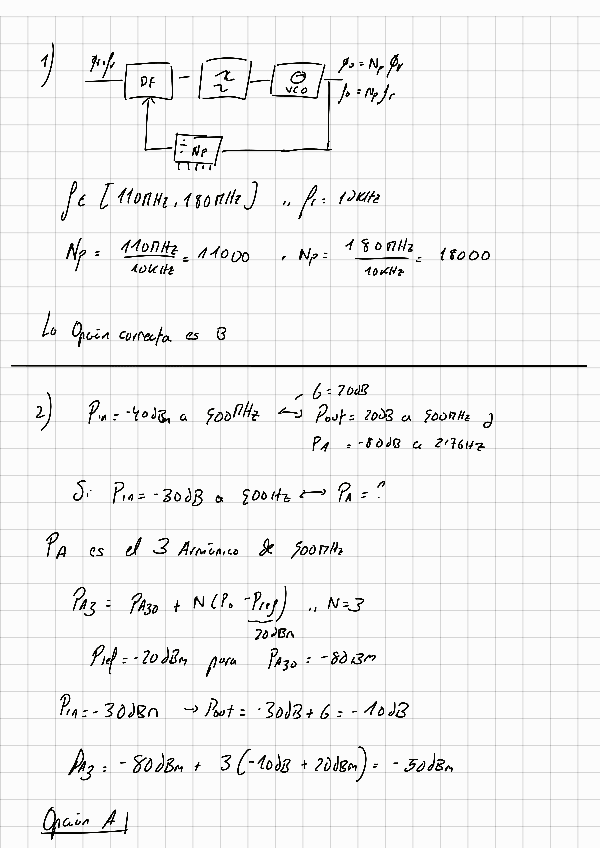 1)
φr, fr
DF
VCO
φo = Np φr
fo = Np fr
÷ Np
f ∈ [110MHz, 180MHz] ,, fr = 10KHz
Np = 110MHz/10KHz = 11000 , Np = 180MHz/10KHz = 18000
La Opción correcta es B
2) Pin = -40dBm a 900MHz ↔ G = 20dB
Pout = 20dB a 900MHz y
PA = -80dB a 2'7GHz
Si Pin = -30dB a 900Hz ↔ PA = ?
PA es el 3 Armónico de 900MHz
PA3 = PA30 + N(Po - Pref) ,, N=3
20dBm
Pref = -20dBm para PA30 = -80dBm
Pin = -30dBm → Pout = -30dB + G = -10dB
PA3 = -80dBm + 3(-10dB + 20dBm) = -50dBm
Opción A